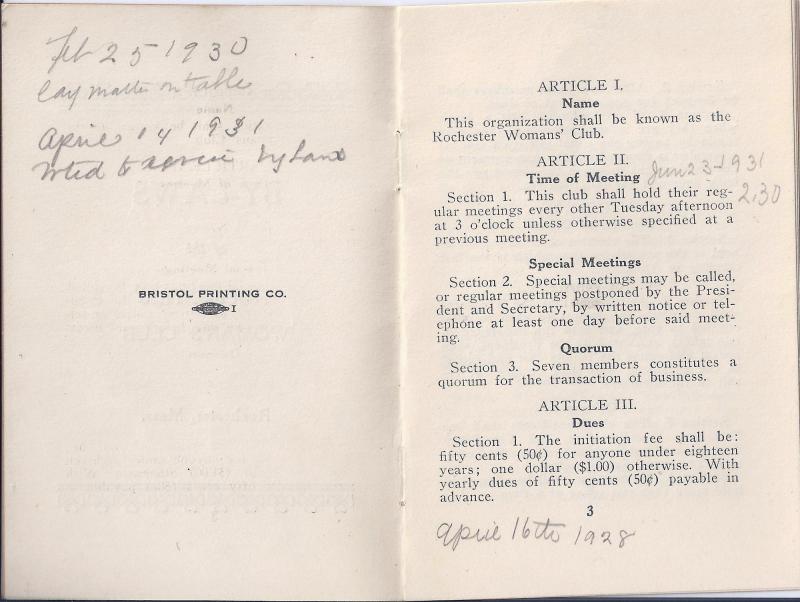 Feb 25 1930
lay matter on table
April 14 1931
Voted to revise by Laws
BRISTOL PRINTING CO.
1
ARTICLE I.
Name
This organization shall be known as the
Rochester Womans' Club.
ARTICLE II.
Time of Meeting Jun 23-1931
Section 1. This club shall hold their reg- 2.30
ular meetings every other Tuesday afternoon
at 3 o'clock unless otherwise specified at a
previous meeting.
Special Meetings
Section 2. Special meetings may be called,
or regular meetings postponed by the Presi-
dent and Secretary, by written notice or tel-
ephone at least one day before said meet-
ing.
Quorum
Section 3. Seven members constitutes a
quorum for the transaction of business.
ARTICLE III.
Dues
Section 1. The initiation fee shall be:
fifty cents (50¢) for anyone under eighteen
years; one dollar ($1.00) otherwise. With
yearly dues of fifty cents (50¢) payable in
advance.
3
April 16th 1928